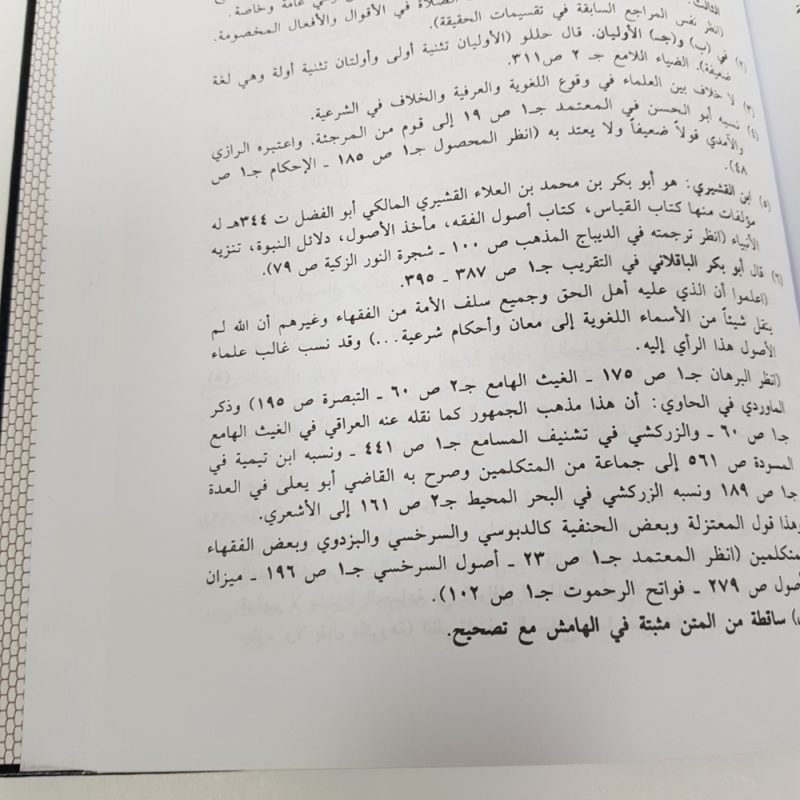 الثالث:
الصلاة في الأقوال والأفعال المخصومة
(انظر نفس المراجع السابقة في تقسيمات الحقيقة).
(٢) في (ب) و(جـ) الأوليان. قال حللو (الأوليان تثنية أولى وأولتان تثنية أولة وهي لغة
ضعيفة). الضياء اللامع جـ ٢ ص٣١١.
(٣) لا خلاف بين العلماء في وقوع اللغوية والعرفية والخلاف في الشرعية.
(٤) نسبه أبو الحسن في المعتمد جـ١ ص ١٩ إلى قوم من المرجئة. واعتبره الرازي
والآمدي قولاً ضعيفاً ولا يعتد به (انظر المحصول جـ١ ص ١٨٥ ـ الإحكام جـ١ ص
٤٨).
(٥) ابن القشيري: هو أبو بكر بن محمد بن العلاء القشيري المالكي أبو الفضل ت ٣٤٤هـ له
مؤلفات منها كتاب القياس، كتاب أصول الفقه، مأخذ الأصول، دلائل النبوة، تنزيه
الأنبياء (انظر ترجمته في الديباج المذهب ص ١٠٠ ـ شجرة النور الزكية ص ٧٩).
(٦) قال أبو بكر الباقلاني في التقريب جـ١ ص ٣٨٧ ـ ٣٩٥.
(اعلموا أن الذي عليه أهل الحق وجميع سلف الأمة من الفقهاء وغيرهم أن الله لم
ينقل شيئاً من الأسماء اللغوية إلى معان وأحكام شرعية...) وقد نسب غالب علماء
الأصول هذا الرأي إليه.
(انظر البرهان جـ١ ص ١٧٥ ـ الغيث الهامع جـ٢ ص ٦٠ ـ التبصرة ص ١٩٥) وذكر
الماوردي في الحاوي: أن هذا مذهب الجمهور كما نقله عنه العراقي في الغيث الهامع
جـ١ ص ٦٠ ـ والزركشي في تشنيف المسامع جـ١ ص ٤٤١ ـ ونسبه ابن تيمية في
المسودة ص ٥٦١ إلى جماعة من المتكلمين وصرح به القاضي أبو يعلى في العدة
جـ١ ص ١٨٩ ونسبه الزركشي في البحر المحيط جـ٢ ص ١٦١ إلى الأشعري.
وهذا قول المعتزلة وبعض الحنفية كالدبوسي والسرخسي والبزدوي وبعض الفقهاء
متكلمين (انظر المعتمد جـ١ ص ٢٣ ـ أصول السرخسي جـ١ ص ١٩٦ ـ ميزان
صول ص ٢٧٩ ـ فواتح الرحموت جـ١ ص ١٠٢).
) ساقطة من المتن مثبتة في الهامش مع تصحيح.